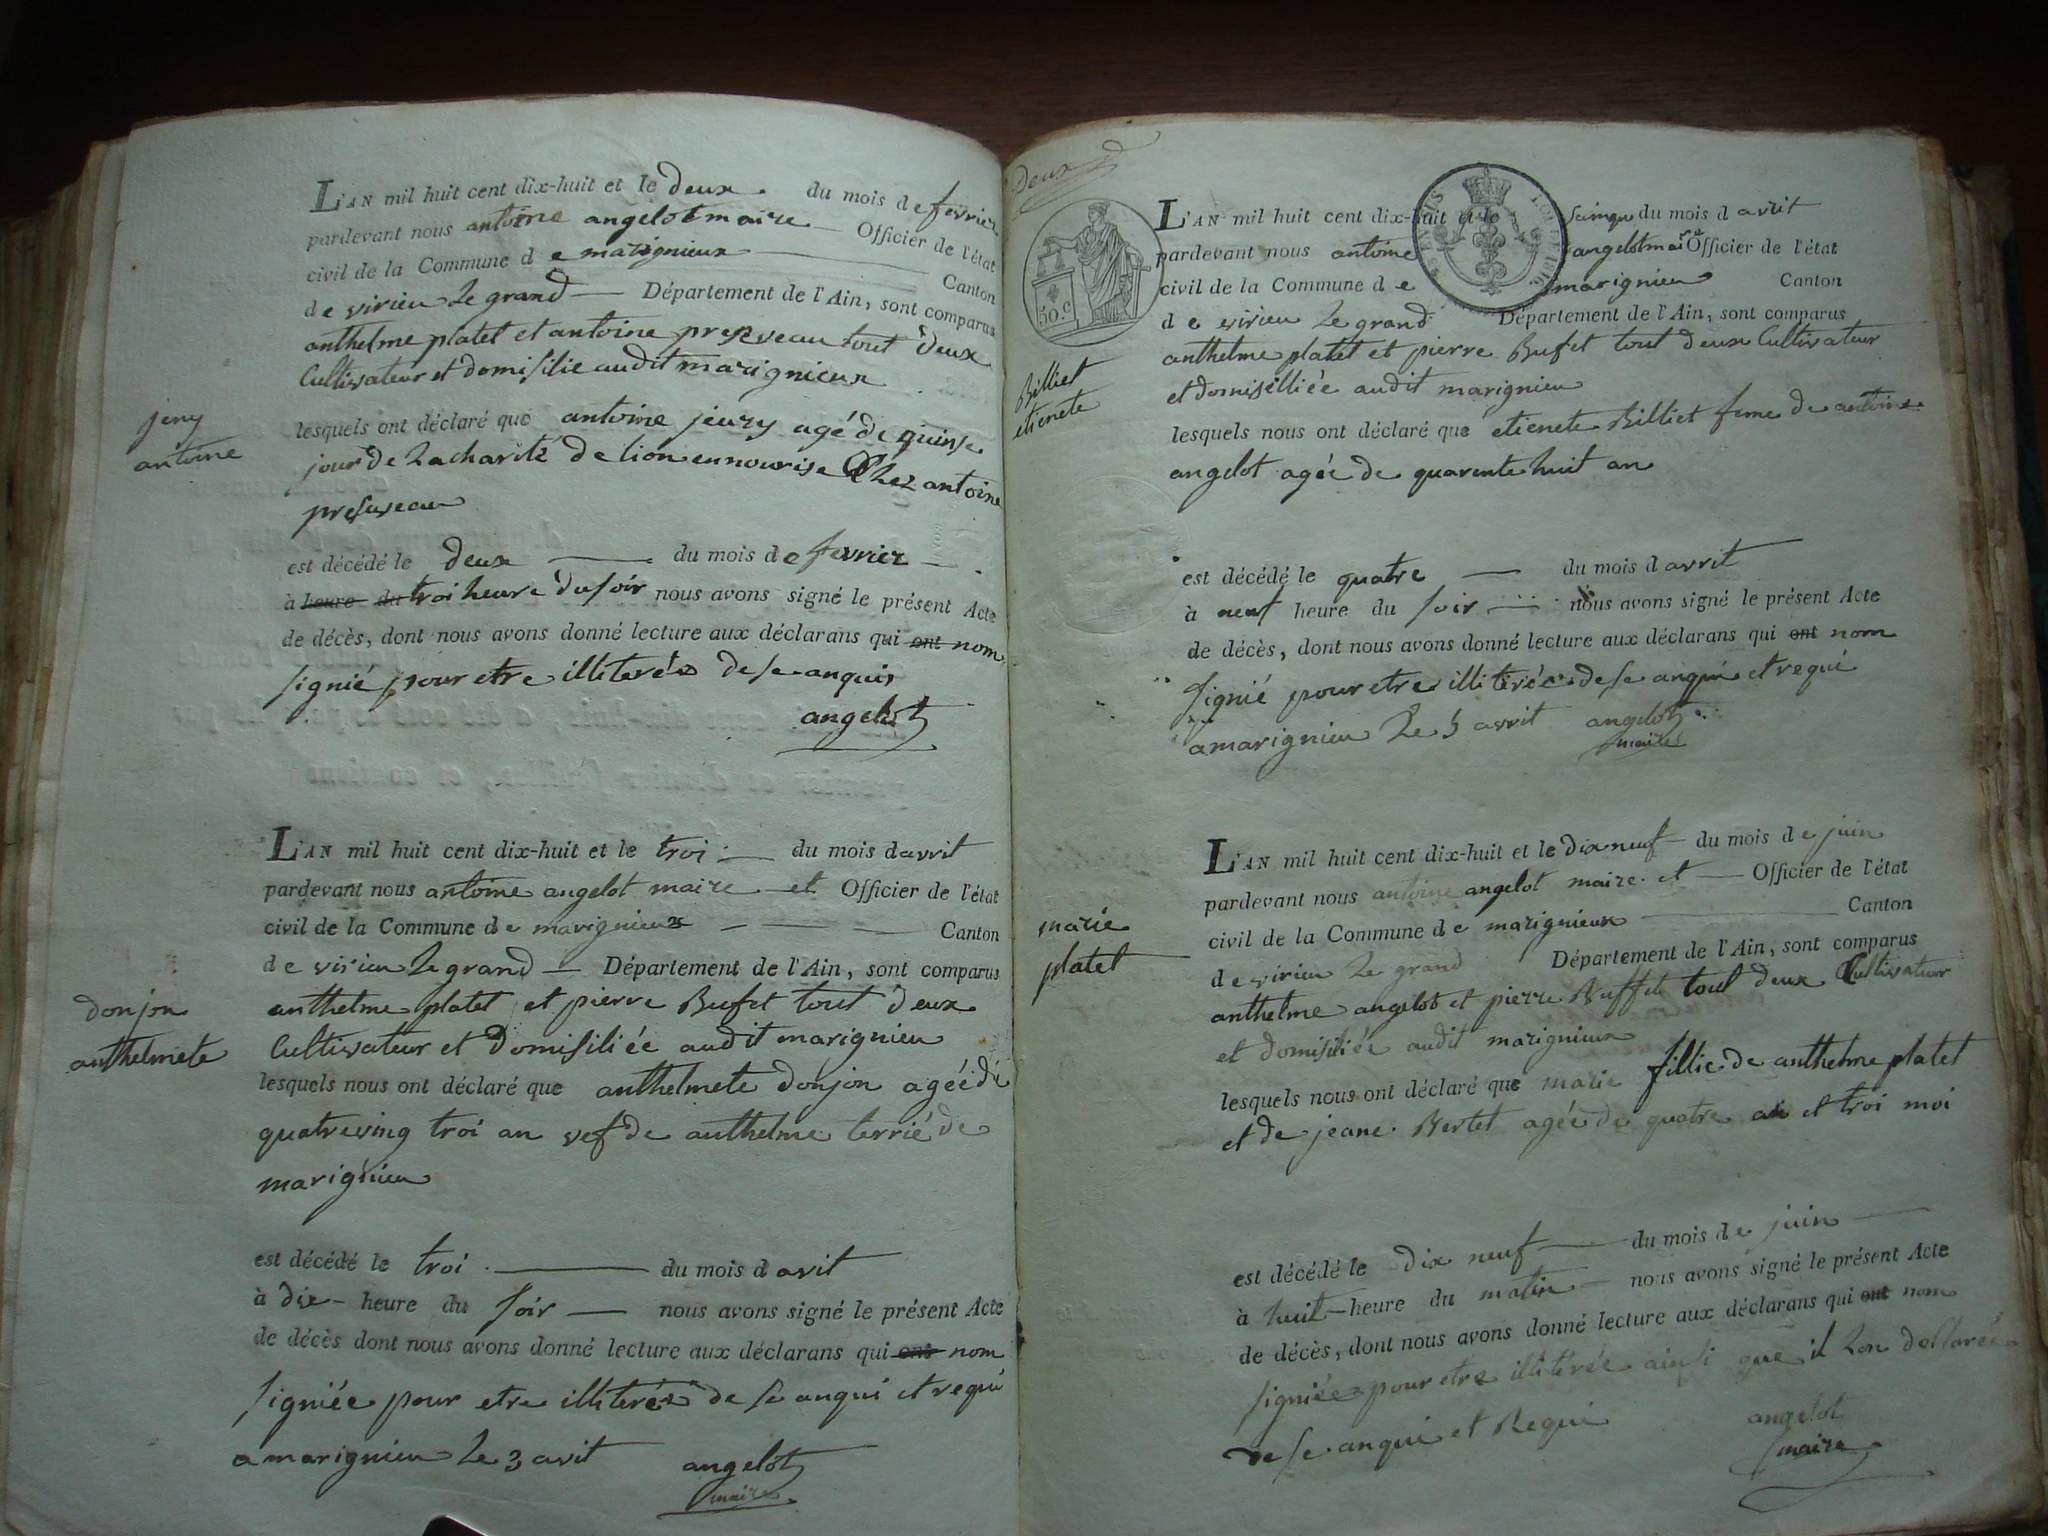 L'AN mil huit cent dix-huit et le deux du mois de fevrier
pardevant nous antoine angelot maire Officier de l'état
civil de la Commune de marignieux Canton
de virieu Le grand Département de l'Ain, sont comparus
anthelme platet et antoine preseveau tout deux
Cultivateur et domisilie audit marignieux
jeury
antoine
lesquels ont déclaré que antoine jeury agé de quinse
jour de La charité de lion ennourise Chez antoine
preseveau
est décédé le deux du mois de fevrier
à heure du troi heure du soir nous avons signé le présent Acte
de décès, dont nous avons donné lecture aux déclarans qui ont nom
signié pour etre illiterés de se anquis
angelot
L'AN mil huit cent dix-huit et le troi du mois d avrit
pardevant nous antoine angelot maire et Officier de l'état
civil de la Commune de marignieux Canton
de virieu Le grand Département de l'Ain, sont comparus
donjon
anthelmete
anthelme platet et pierre Bufet tout deux
Cultivateur et Domisiliée audit marignieu
lesquels nous ont déclaré que anthelmete donjon agée de
quatreving troi an vef de anthelme terrié de
marignieu
est décédé le troi du mois d avit
à dix heure du soir nous avons signé le présent Acte
de décès dont nous avons donné lecture aux déclarans qui ont nom
signiée pour etre illiterée de se anqui et requi
a marignieu Le 3 avit angelot
maire
Deux
50.c
L'AN mil huit cent dix-huit et le sainqu du mois d avrit
pardevant nous antoine angelot maire Officier de l'état
civil de la Commune de marignieu Canton
de virieu Le grand Département de l'Ain, sont comparus
Billiet
etienete
anthelme platet et pierre Bufet tout deux Cultivateur
et domiselliée audit marignieu
lesquels nous ont déclaré que etienete Billiet feme de antoine
angelot agée de quarente huit an
est décédé le quatre du mois d avrit
à neuf heure du soir nous avons signé le présent Acte
de décès, dont nous avons donné lecture aux déclarans qui ont nom
signié pour etre illiterée de se anqui et requi
a marignieu Le 5 avrit angelot
maire
L'AN mil huit cent dix-huit et le dix neuf du mois de juin
pardevant nous antoine angelot maire et Officier de l'état
civil de la Commune de marignieux Canton
de virieu Le grand Département de l'Ain, sont comparus
marie
platet
anthelme angelot et pierre Buffet tout deux Cultivateur
et domisiliée audit marignieux
lesquels nous ont déclaré que marie fillie de anthelme platet
et de jeane Bertet agée de quatre an et troi moi
est décédé le dix neuf du mois de juin
à huit heure du matin nous avons signé le présent Acte
de décès, dont nous avons donné lecture aux déclarans qui ont nom
signiée pour etre illiterée ainsi que il Lon declarée
de se anqui et Requi angelot
maire